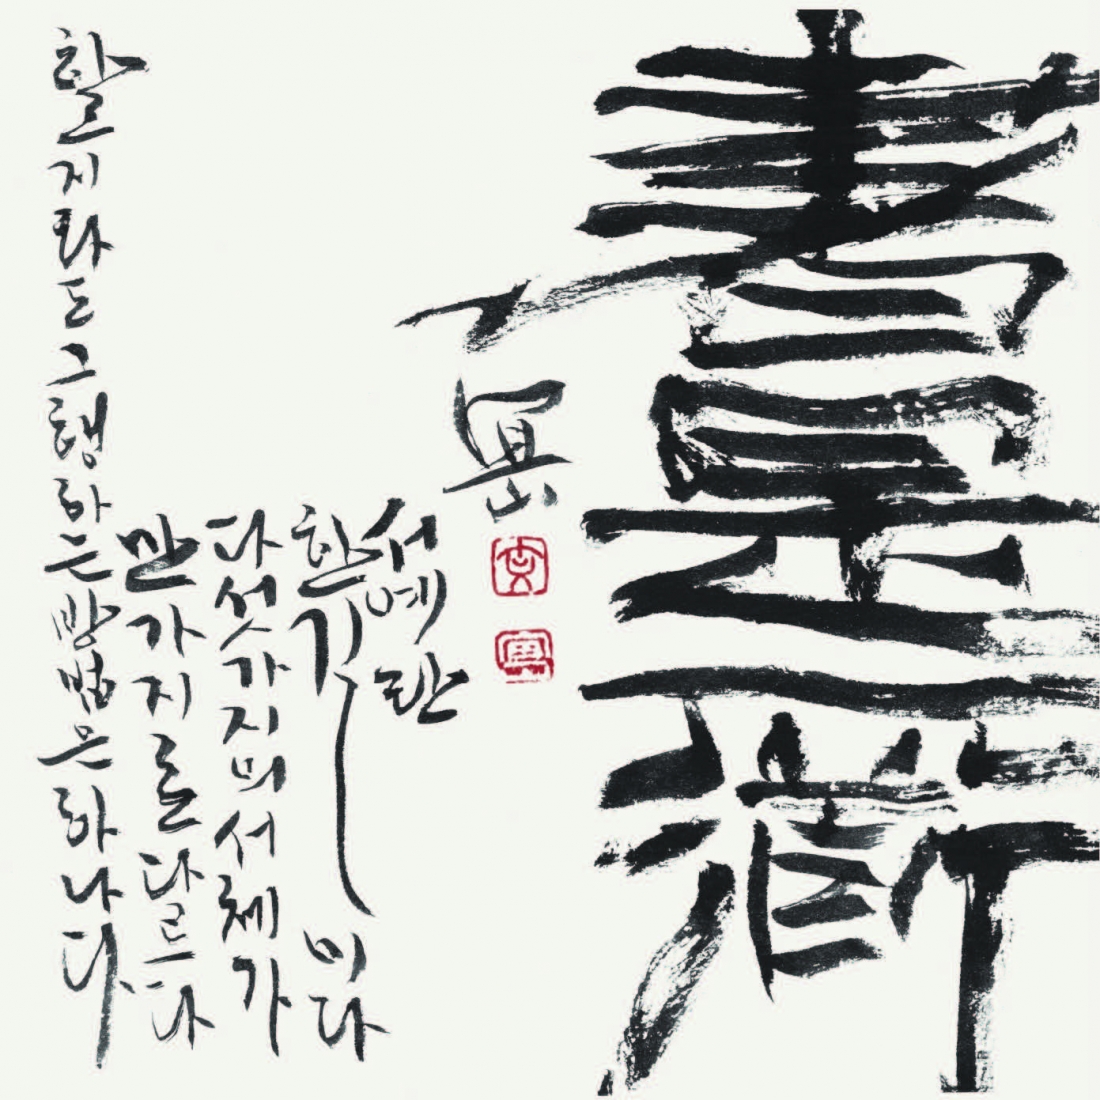 書
서예란
한길이다
다섯가지의 서체가
만가지로 다르다
할지라도 그 행하는 방법은 하나다